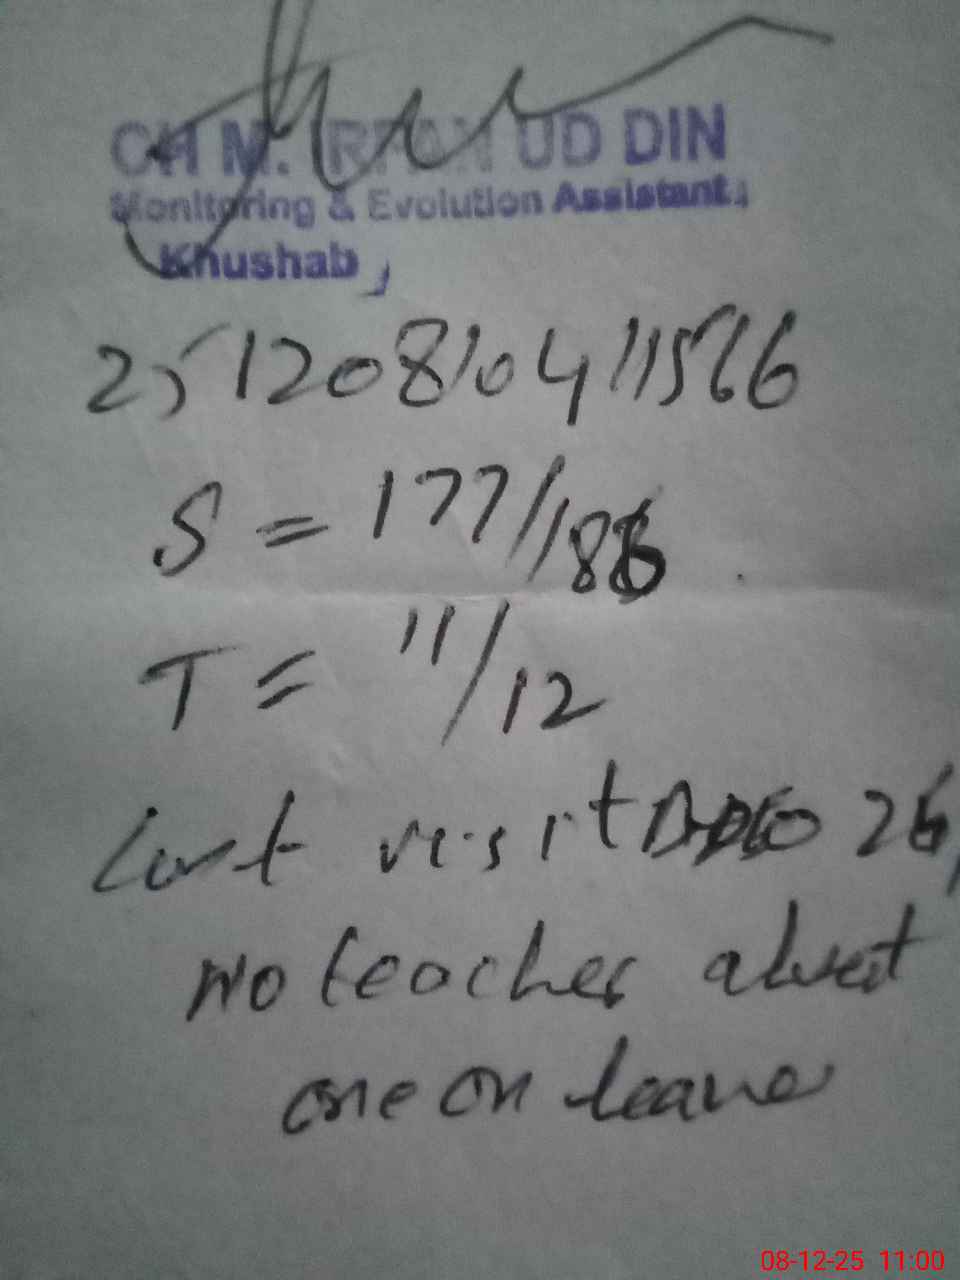 CH M. IRFAN UD DIN
Monitoring & Evolution Assistant
Khushab
S = 177/186
T = 11/12
Last visit DDEO 26
no teacher absent
one on leave
08-12-25 11:00